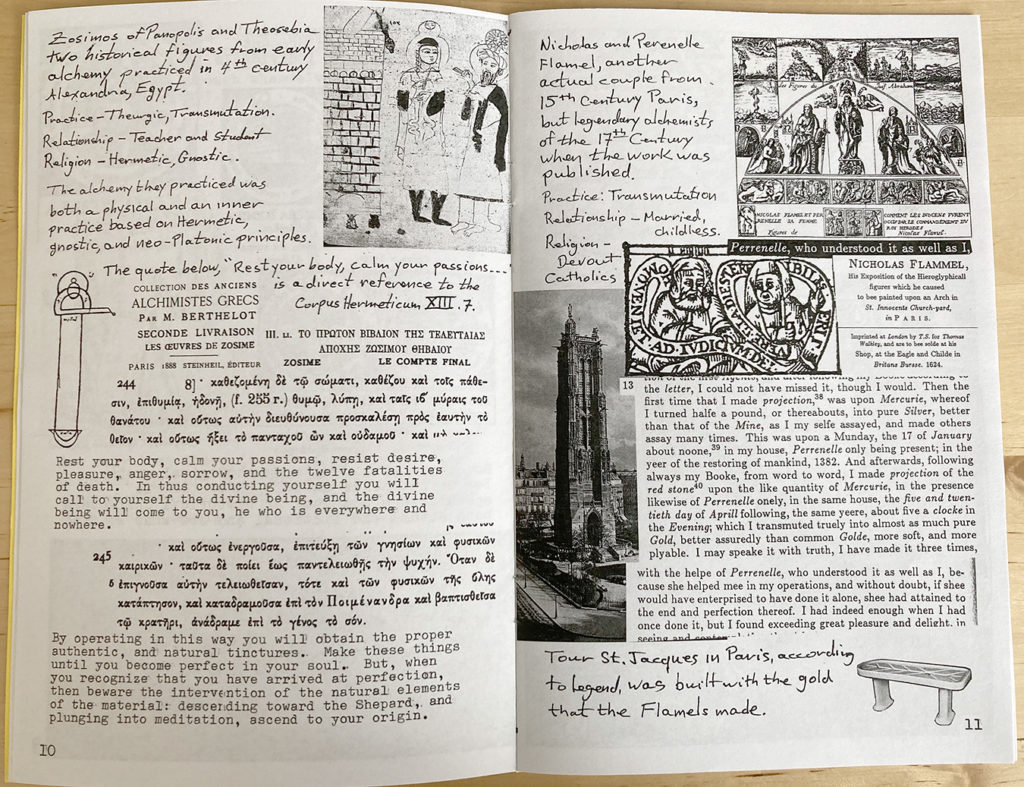 Zosimos of Panopolis and Theosebia
two historical figures from early
alchemy practiced in 4th century
Alexandria, Egypt.
Practice – Theurgic, Transmutation.
Relationship – Teacher and Student
Religion – Hermetic, Gnostic.
The alchemy they practiced was
both a physical and an inner
practice based on Hermetic,
gnostic, and neo-Platonic principles.
The quote below, "Rest your body, calm your passions...."
is a direct reference to the
Corpus Hermeticum XIII. 7.
COLLECTION DES ANCIENS
ALCHIMISTES GRECS
PAR M. BERTHELOT
SECONDE LIVRAISON
LES ŒUVRES DE ZOSIME
PARIS 1888 STEINHEIL, ÉDITEUR
III. LI. ΤΟ ΠΡΩΤΟΝ ΒΙΒΛΙΟΝ ΤΗΣ ΤΕΛΕΥΤΑΙΑΣ
ΑΠΟΧΗΣ ΖΩΣΙΜΟΥ ΘΗΒΑΙΟΥ
ZOSIME LE COMPTE FINAL
244 8] · καθεζομένη δὲ τῷ σώματι, καθέζου καὶ τοῖς πάθε-
σιν, ἐπιθυμίᾳ, ἡδονῇ, (f. 255 r.) θυμῷ, λύπῃ, καὶ ταῖς ιβ´ μοίραις τοῦ
θανάτου · καὶ οὕτως αὐτὴν διευθύνουσα προσκαλέσῃ πρὸς ἑαυτὴν τὸ
θεῖον · καὶ οὕτως ἥξει τὸ πανταχοῦ ὢν καὶ οὐδαμοῦ · καὶ
Rest your body, calm your passions, resist desire,
pleasure, anger, sorrow, and the twelve fatalities
of death. In thus conducting yourself you will
call to yourself the divine being, and the divine
being will come to you, he who is everywhere and
nowhere.
245 · καὶ οὕτως ἐνεργοῦσα, ἐπιτεύξῃ τῶν γνησίων καὶ φυσικῶν
καιρικῶν · ταῦτα δὲ ποίει ἕως παντελειωθῇς τὴν ψυχήν. Ὅταν δὲ
ἐπιγνοῦσα αὐτὴν τελειωθεῖσαν, τότε καὶ τῶν φυσικῶν τῆς ὕλης
κατάπτησον, καὶ καταδραμοῦσα ἐπὶ τὸν Ποιμένανδρα καὶ βαπτισθεῖσα
τῷ κρατῆρι, ἀνάδραμε ἐπὶ τὸ γένος τὸ σόν.
By operating in this way you will obtain the proper
authentic, and natural tinctures. Make these things
until you become perfect in your soul. But, when
you recognize that you have arrived at perfection,
then beware the intervention of the natural elements
of the material: descending toward the Shepard, and
plunging into meditation, ascend to your origin.
10
Nicholas and Perenelle
Flamel, another
actual couple from
15th Century Paris,
but legendary alchemists
of the 17th Century
when the work was
published.
Practice: Transmutation
Relationship – Married,
childless.
Religion –
Devout
Catholics
NICOLAS FLAMEL ET PER
RENELLE SA FEMME
Figures de
COMMENT LES INOCENS FURENT
OCCIS PAR LE COMMANDEMENT DU
ROY HERODES
Nicolas Flamel.
Perrenelle, who understood it as well as I,
NICHOLAS FLAMMEL,
His Exposition of the Hieroglyphicall
figures which he caused
to bee painted upon an Arch in
St. Innocents Church-yard,
in PARIS.
Imprinted at London by T.S. for Thomas
Walkley, and are to bee solde at his
Shop, at the Eagle and Childe in
Britans Bursse. 1624.
13
the letter, I could not have missed it, though I would. Then the
first time that I made projection,38 was upon Mercurie, whereof
I turned halfe a pound, or thereabouts, into pure Silver, better
than that of the Mine, as I my selfe assayed, and made others
assay many times. This was upon a Munday, the 17 of January
about noone,39 in my house, Perrenelle only being present; in the
yeer of the restoring of mankind, 1382. And afterwards, following
always my Booke, from word to word, I made projection of the
red stone40 upon the like quantity of Mercurie, in the presence
likewise of Perrenelle onely, in the same house, the five and twen-
tieth day of Aprill following, the same yeere, about five a clocke in
the Evening; which I transmuted truely into almost as much pure
Gold, better assuredly than common Golde, more soft, and more
plyable. I may speake it with truth, I have made it three times,
with the helpe of Perrenelle, who understood it as well as I, be-
cause she helped mee in my operations, and without doubt, if shee
would have enterprised to have done it alone, shee had attained to
the end and perfection thereof. I had indeed enough when I had
once done it, but I found exceeding great pleasure and delight, in
Tour St. Jacques in Paris, according
to legend, was built with the gold
that the Flamels made.
11